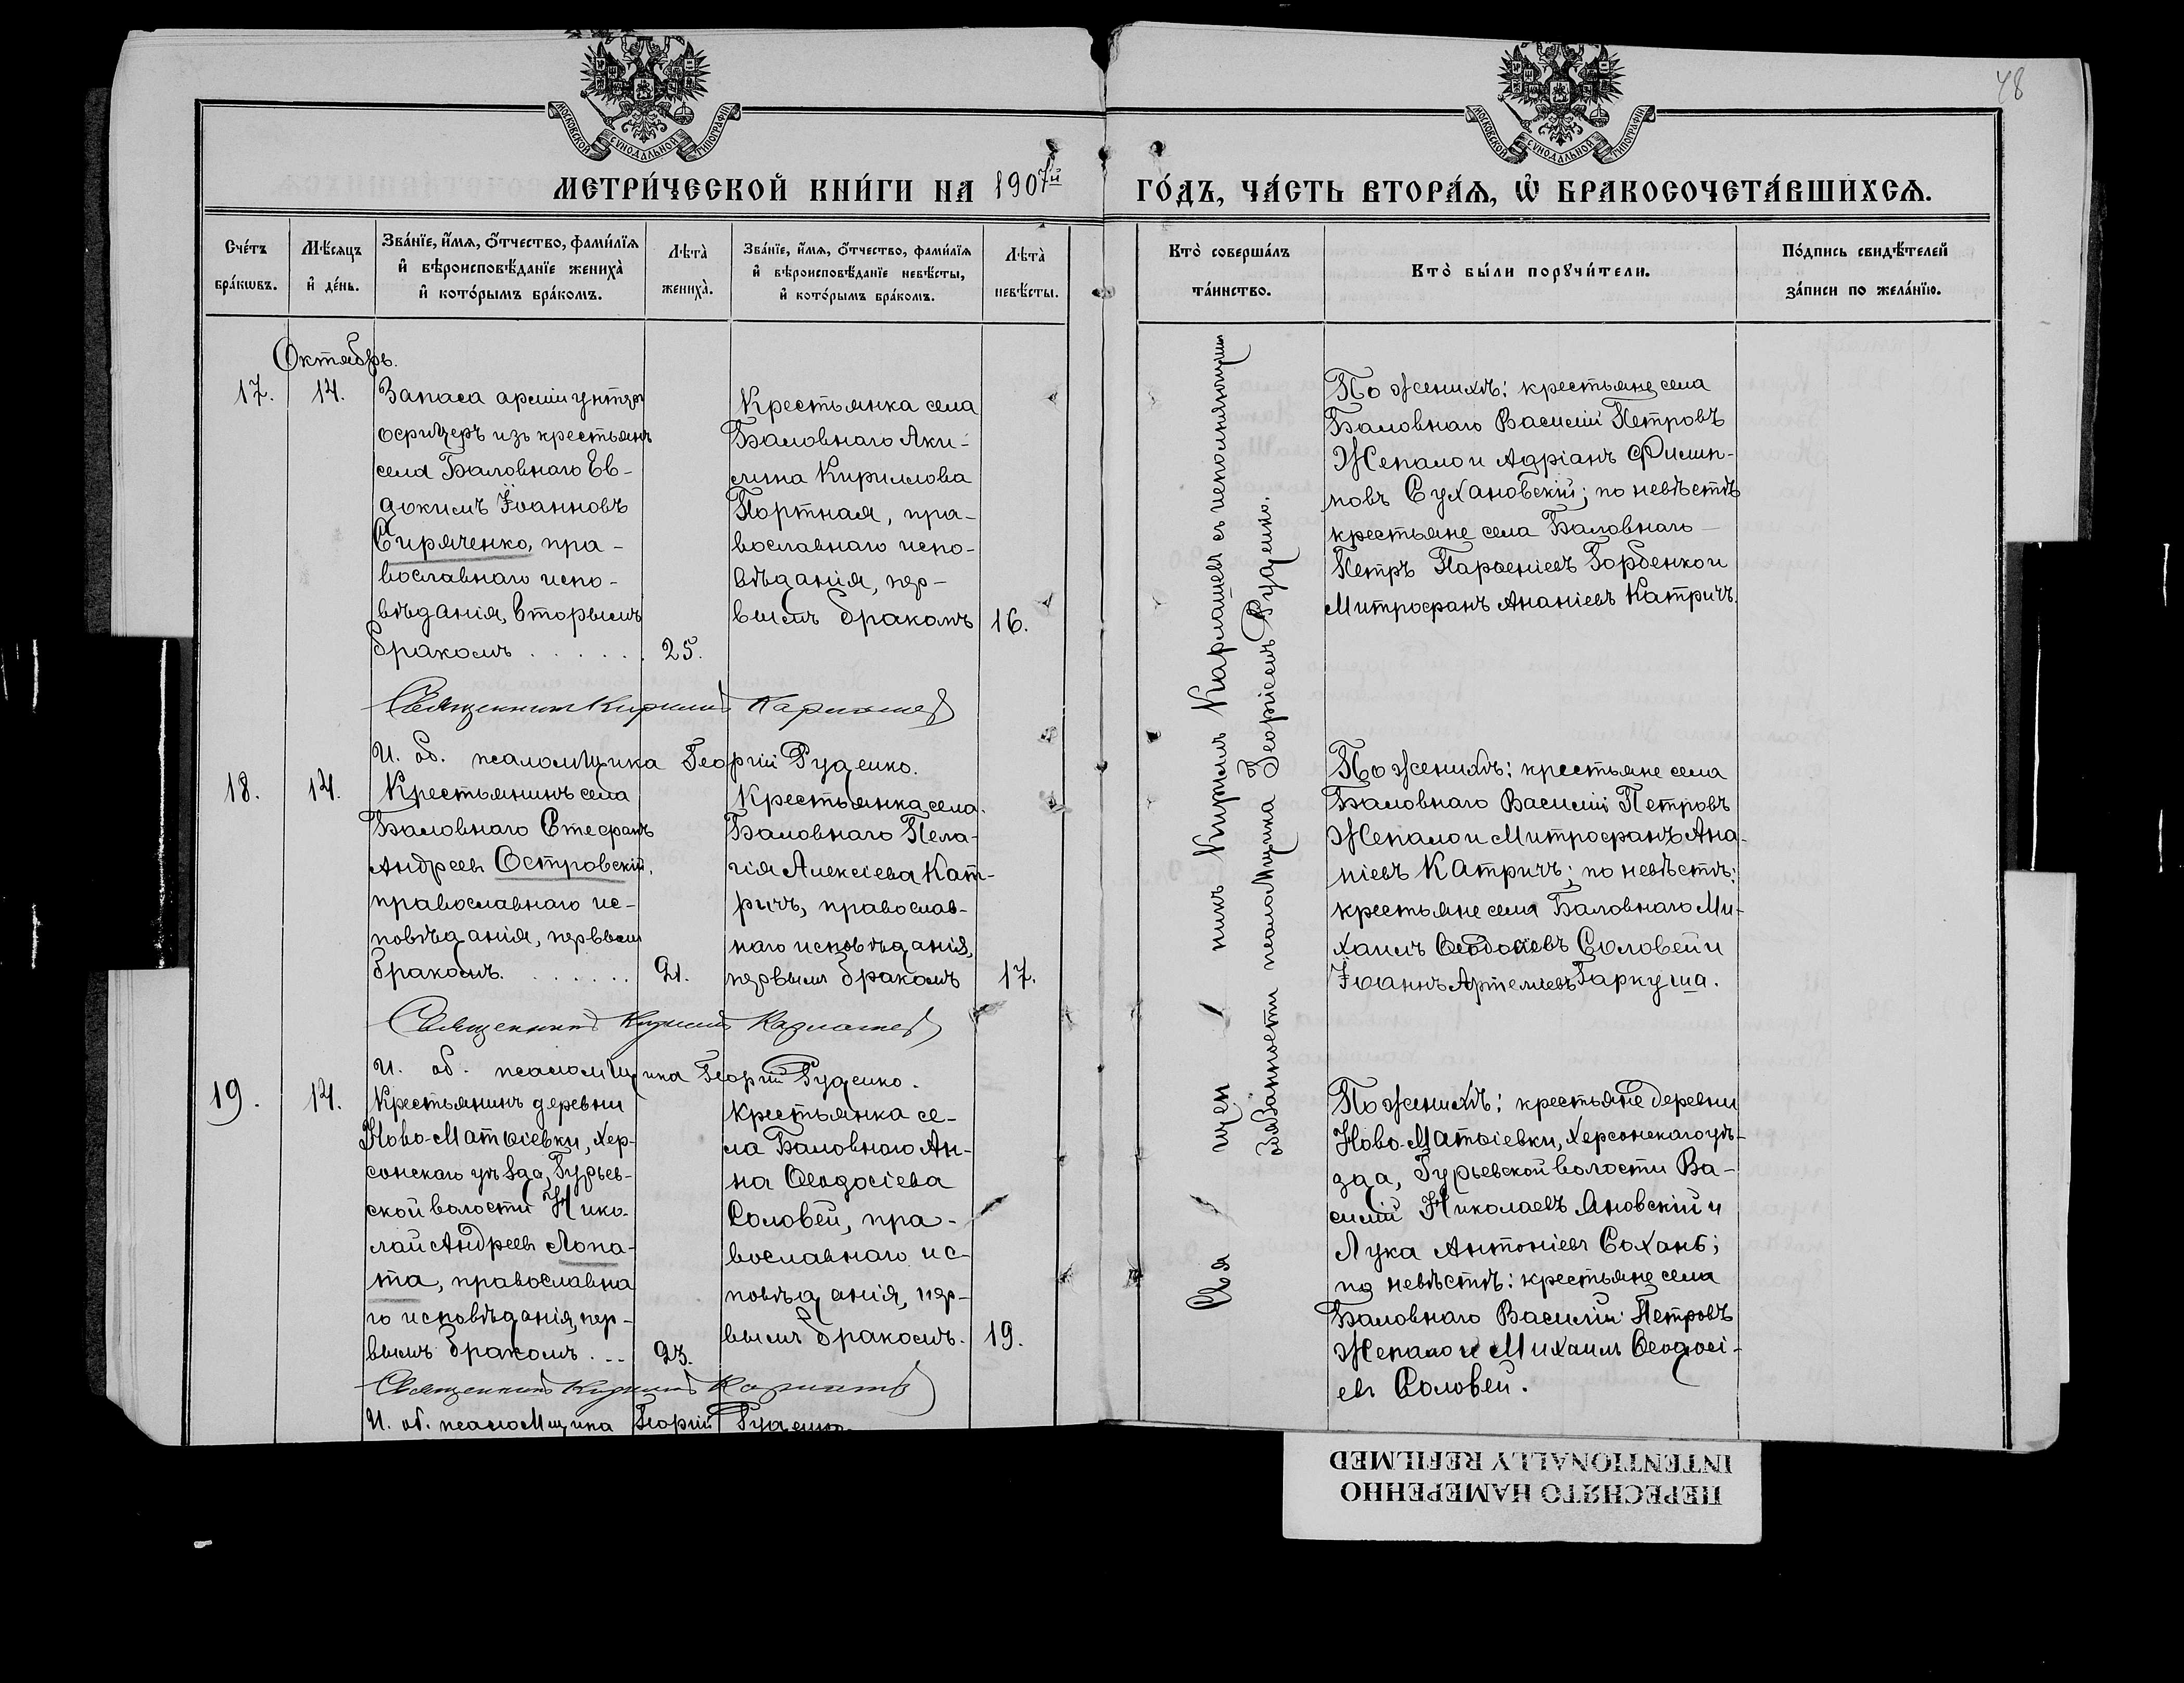 48
МОСКОВСКОЙ СѴНОДАЛЬНОЙ ТИПОГРАФІИ
МОСКОВСКОЙ СѴНОДАЛЬНОЙ ТИПОГРАФІИ
МЕТРИ́ЧЕСКОЙ КНИ́ГИ НА 1907й
ГО́ДЪ, ЧА́СТЬ ВТОРА́Ѧ, Ѡ҆ БРАКОСОЧЕТА́ВШИХСѦ.
Сче́тъ
бра́кѡвъ.
Мѣ́сѧцъ
и҆ де́нь.
Зва́нїе, и҆́мѧ, ѻ҆́тчество, фами́лїѧ
и҆ вѣроисповѣ́данїе жениха̀
и҆ кото́рымъ бра́комъ.
Лѣта̀
жениха̀.
Зва́нїе, и҆́мѧ, ѻ҆́тчество, фами́лїѧ
и҆ вѣроисповѣ́данїе невѣ́сты,
и҆ кото́рымъ бра́комъ.
Лѣта̀
невѣ́сты.
Кто̀ соверша́лъ
та́инство.
Кто̀ бы́ли порꙋчи́тели.
По́дпись свидѣ́телей
за́писи по жела́нїю.
Октябрь.
17.
14.
Запаса арміи унтеръ
офицеръ изъ крестьянъ
села Баловнаго Ев-
докимъ Іоанновъ
Сиряченко, пра-
вославнаго испо-
вѣданія, вторымъ
бракомъ . . . . . .
25.
Крестьянка села
Баловнаго Аки-
лина Кириллова
Портная, пра-
вославнаго испо-
вѣданія, пер-
вымъ бракомъ
16.
По женихѣ: крестьяне села
Баловнаго Василій Петровъ
Жепало и Адріанъ Филип-
повъ Сухановскій; по невѣстѣ
крестьяне села Баловнаго
Петръ Парѳеніевъ Горбенко и
Митрофанъ Ананіевъ Катричъ.
Священникъ Кириллъ Карлашев
И. об. псаломщика Георгій Руденко.
18.
14.
Крестьянинъ села
Баловнаго Стефанъ
Андреевъ Островскій,
православнаго ис-
повѣданія, первымъ
бракомъ. . . . . . .
21.
Крестьянка села
Баловнаго Пела-
гія Алексіева Кат-
ричъ, православ-
наго исповѣданія,
первымъ бракомъ
17.
По женихѣ: крестьяне села
Баловнаго Василій Петровъ
Жепало и Митрофанъ Ана-
ніевъ Катричъ; по невѣстѣ:
крестьяне села Баловнаго Ми-
хаилъ Ѳеодосіевъ Соловей и
Іоаннъ Артемиевъ Гаркуша.
Священникъ Кириллъ Карлашев
И. об. псаломщика Георгій Руденко.
19.
14.
Крестьянинъ деревни
Ново-Матвіевки, Хер-
сонскаго уѣзда, Гурьев-
ской волости Нико-
лай Андреевъ Лопа-
та, православна
го исповѣданія, пер-
вымъ бракомъ . . .
23.
Крестьянка се-
ла Баловнаго Ан-
на Ѳеодосіева
Соловей, пра-
вославнаго ис-
повѣданія, пер-
вымъ бракомъ.
19.
По женихѣ: крестьяне деревни
Ново-Матвіевки, Херсонскаго уѣ-
зда, Гурьевской волости Ва-
силій Николаевъ Яновскій и
Лука Антоніевъ Сохань;
по невѣстѣ: крестьяне села
Баловнаго Василій Петровъ
Жепало и Михаилъ Ѳеодосі-
евъ Соловей.
Священникъ Кириллъ Карлашев
И. об. псаломщика Георгій Руденко.
Священникъ Кириллъ Карлашевъ съ исполняющимъ
обязанности псаломщика Георгіемъ Руденко.
ПЕРЕСНЯТО НАМЕРЕННО
INTENTIONALLY REFILMED